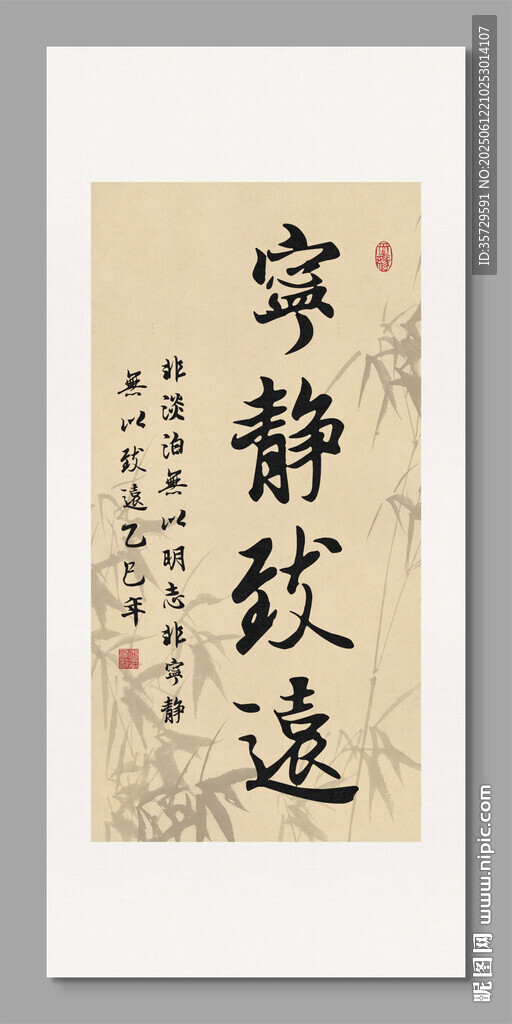 寧静致遠
非淡泊無以明志非寧静
無以致遠乙巳年
ID:35729591 NO:20250612210253014107
昵图网 www.nipic.com